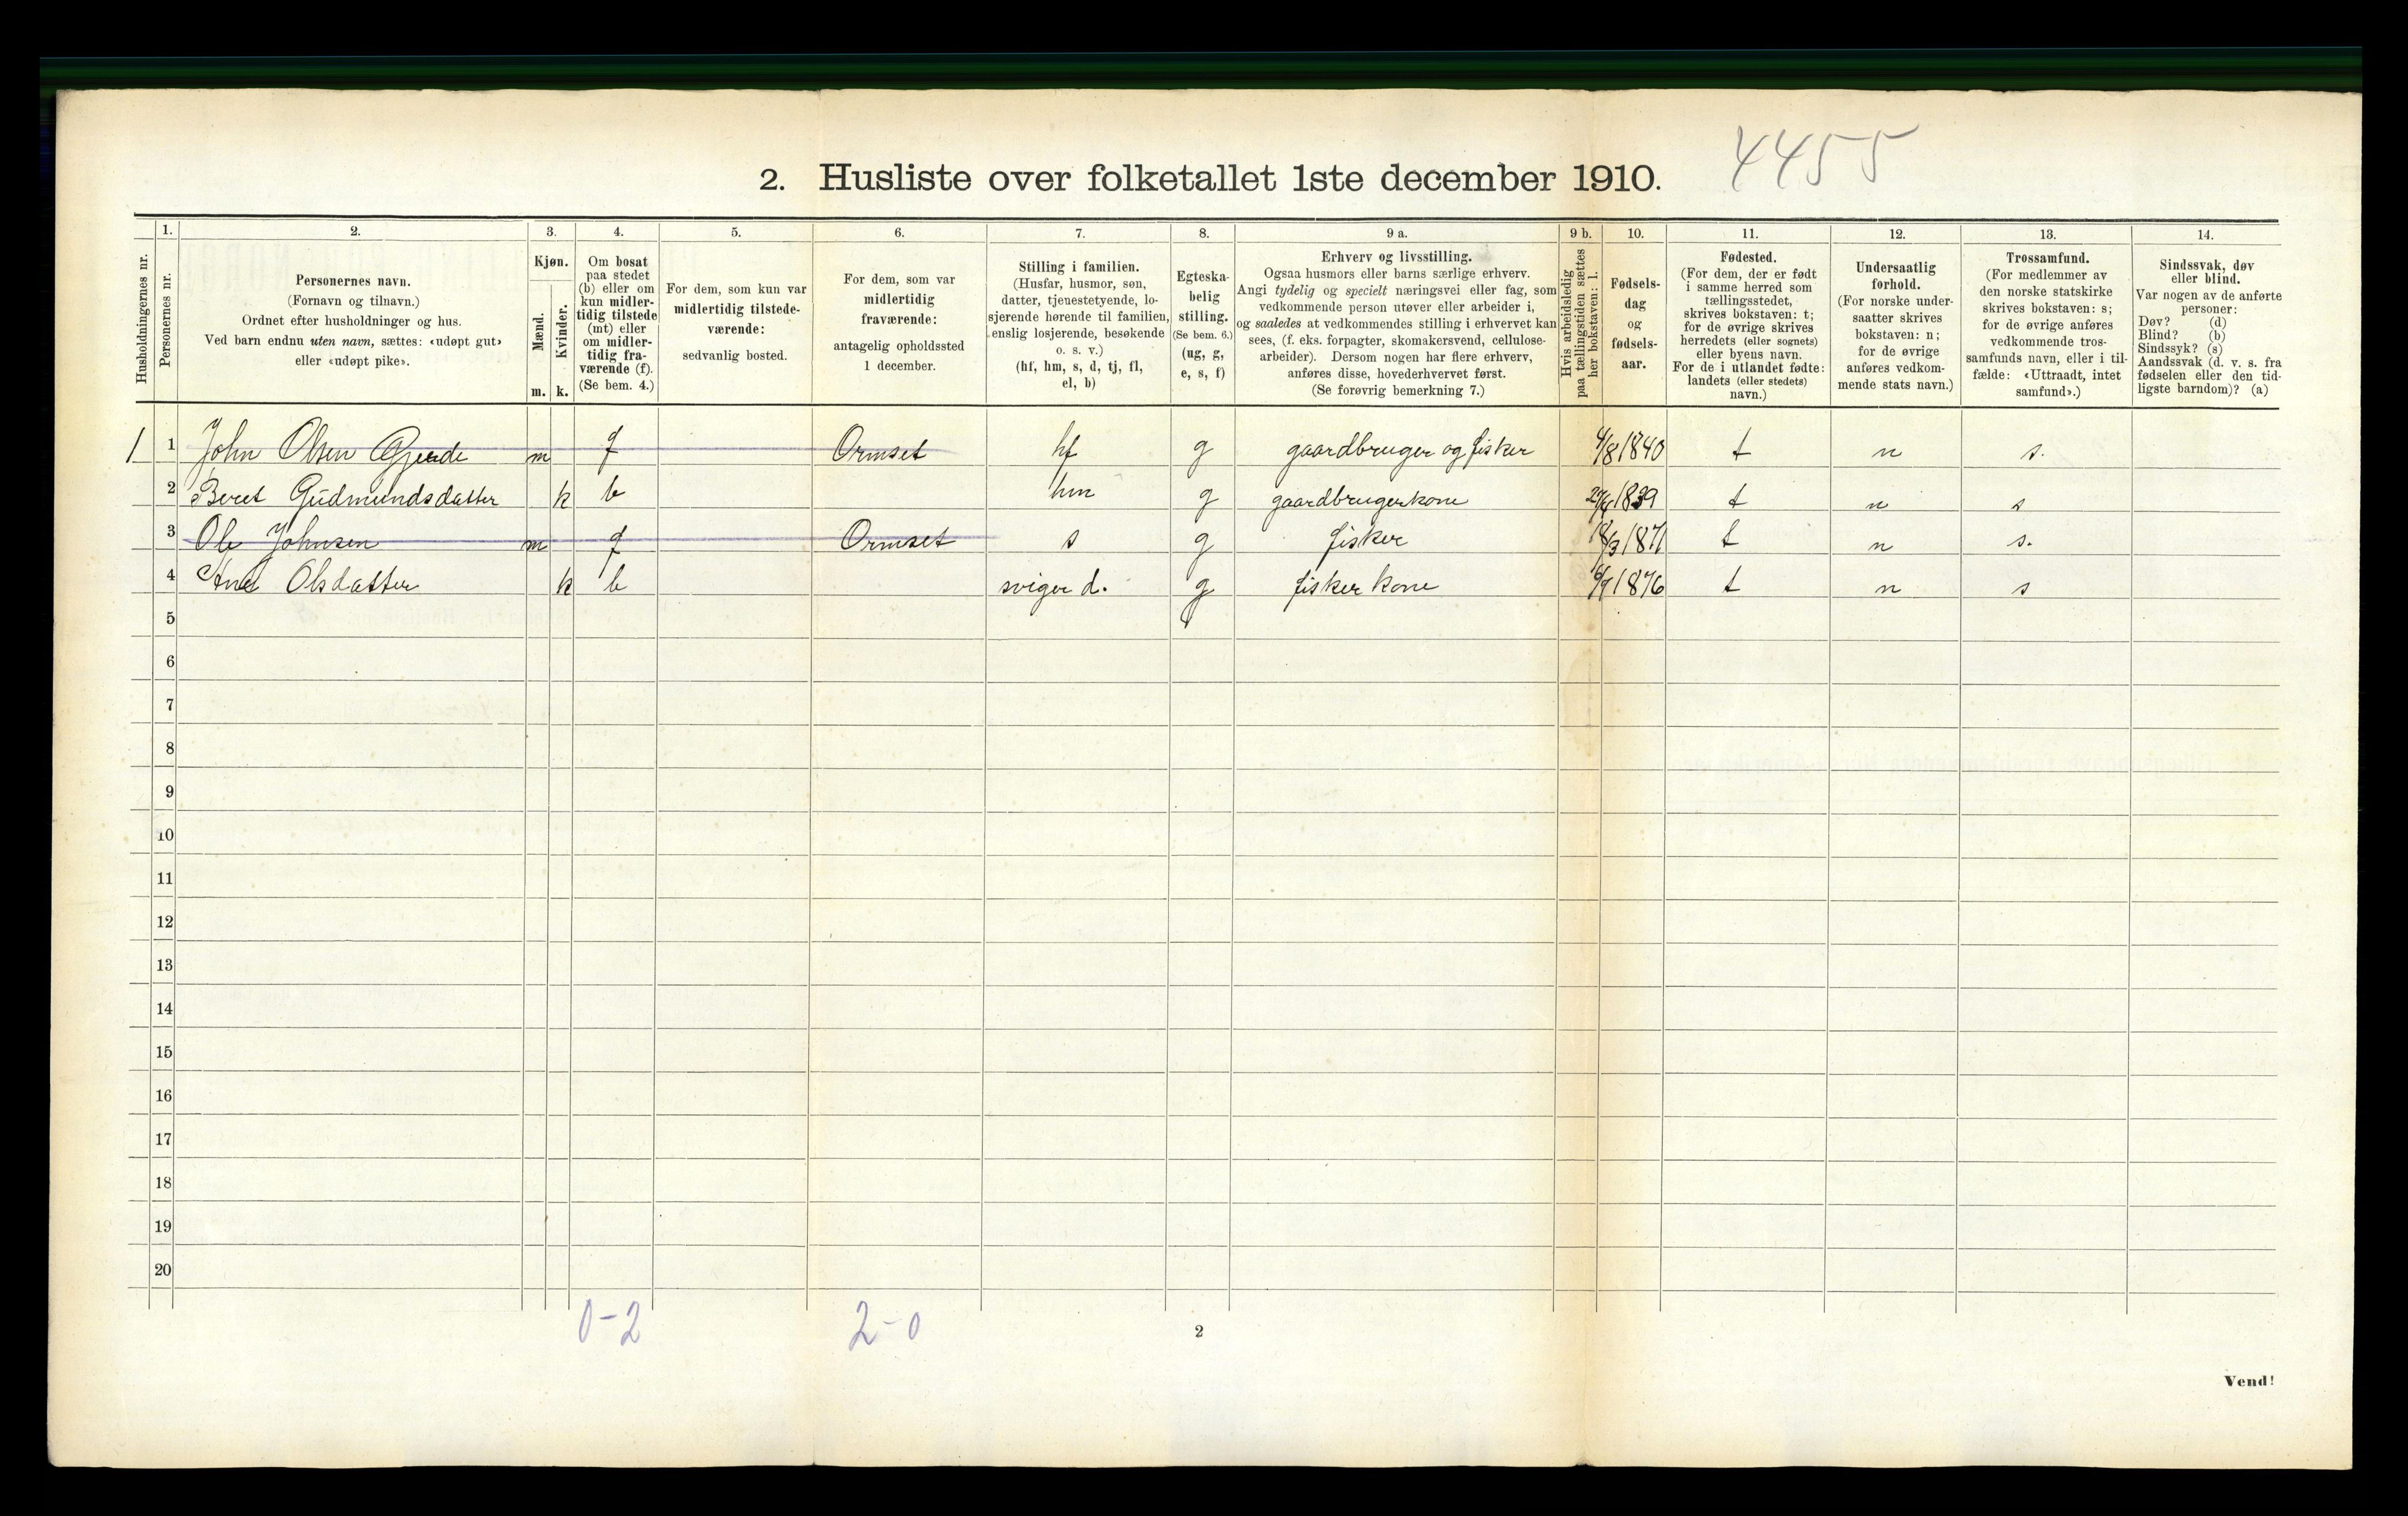 4455
2. Husliste over folketallet 1ste december 1910.
Husholdningernes nr.
1.
Personernes nr.
2.
Personernes navn.
(Fornavn og tilnavn.)
Ordnet efter husholdninger og hus.
Ved barn endnu uten navn, sættes: «udøpt gut»
eller «udøpt pike».
3.
Kjøn.
Mænd.
Kvinder.
m.
k.
4.
Om bosat
paa stedet
(b) eller om
kun midler-
tidig tilstede
(mt) eller
om midler-
tidig fra-
værende (f).
(Se bem. 4.)
5.
For dem, som kun var
midlertidig tilstede-
værende:
sedvanlig bosted.
6.
For dem, som var
midlertidig
fraværende:
antagelig opholdssted
1 december.
7.
Stilling i familien.
(Husfar, husmor, søn,
datter, tjenestetyende, lo-
sjerende hørende til familien,
enslig losjerende, besøkende
o. s. v.)
(hf, hm, s, d, tj, fl,
el, b)
8.
Egteska-
belig
stilling.
(Se bem. 6.)
(ug, g,
e, s, f)
9 a.
Erhverv og livsstilling.
Ogsaa husmors eller barns særlige erhverv.
Angi tydelig og specielt næringsvei eller fag, som
vedkommende person utøver eller arbeider i,
og saaledes at vedkommendes stilling i erhvervet kan
sees, (f. eks. forpagter, skomakersvend, cellulose-
arbeider). Dersom nogen har flere erhverv,
anføres disse, hovederhvervet først.
(Se forøvrig bemerkning 7.)
9 b.
Hvis arbeidsledig
paa tællingstiden sættes
her bokstaven: l.
10.
Fødsels-
dag
og
fødsels-
aar.
11.
Fødested.
(For dem, der er født
i samme herred som
tællingsstedet,
skrives bokstaven: t;
for de øvrige skrives
herredets (eller sognets)
eller byens navn.
For de i utlandet fødte:
landets (eller stedets)
navn.)
12.
Undersaatlig
forhold.
(For norske under-
saatter skrives
bokstaven: n;
for de øvrige
anføres vedkom-
mende stats navn.)
13.
Trossamfund.
(For medlemmer av
den norske statskirke
skrives bokstaven: s;
for de øvrige anføres
vedkommende tros-
samfunds navn, eller i til-
fælde: «Uttraadt, intet
samfund».)
14.
Sindssvak, døv
eller blind.
Var nogen av de anførte
personer:
Døv? (d)
Blind? (b)
Sindssyk? (s)
Aandssvak (d. v. s. fra
fødselen eller den tid-
ligste barndom)? (a)
1 1 John Olsen Gjerde m f Ormset hf g gaardbruger og fisker 4/8 1840 t n s.
2 Beret Gudmundsdatter k b hm g gaardbrugerkone 1839 t n s
3 Ole Johnsen m f Ormset s g fisker 1871 t n s.
4 Olsdatter k b sviger d. g fisker kone 1876 t n s
5
6
7
8
9
10
11
12
13
14
15
16
17
18
19
20
0-2 2-0
2
Vend!